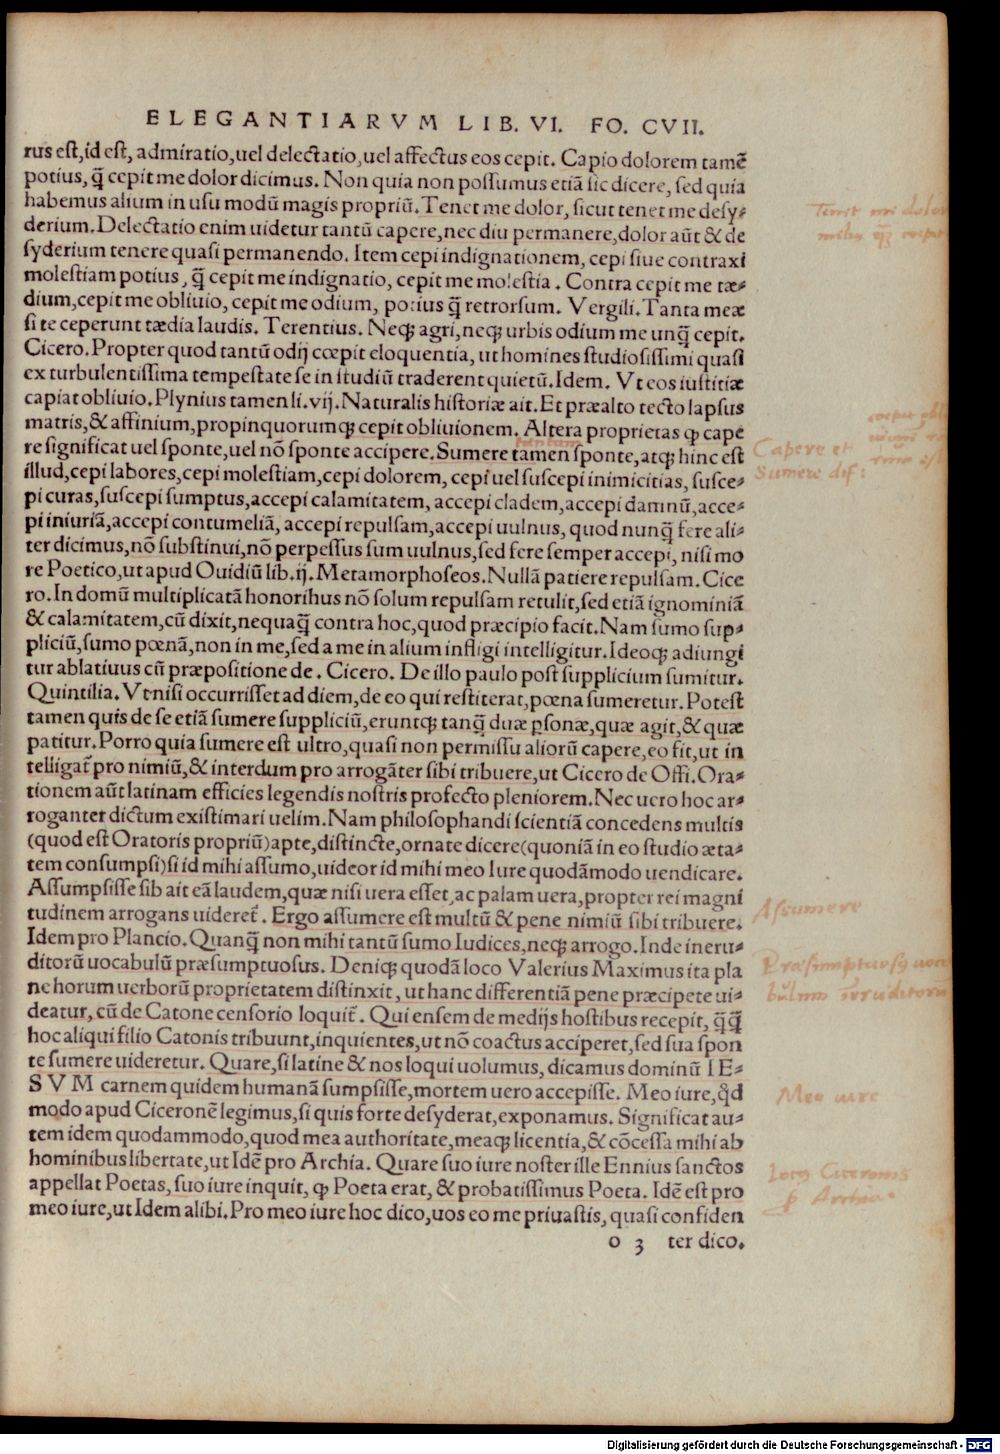 ELEGANTIARVM LIB. VI. FO. CVII.
rus est, id est, admiratio, uel delectatio, uel affectus eos cepit. Capio dolorem tamē
potius, q̃ cepit me dolor dicimus. Non quia non possumus etiā sic dicere, sed quia
habemus alium in usu modū magis propriū. Tenet me dolor, sicut tenet me desy-
derium. Delectatio enim uidetur tantū capere, nec diu permanere, dolor aūt & de
syderium tenere quasi permanendo. Item cepi indignationem, cepi siue contraxi
molestiam potius, q̃ cepit me indignatio, cepit me molestia. Contra cepit me tæ-
dium, cepit me obliuio, cepit me odium, potius q̃ retrorsum. Vergili. Tanta meæ
si te ceperunt tædia laudis. Terentius. Neqꝫ agri, neqꝫ urbis odium me unq̃ cepit.
Cicero. Propter quod tantū odij cœpit eloquentia, ut homines studiosissimi quasi
ex turbulentissima tempestate se in studiū traderent quietū. Idem. Vt eos iustitiæ
capiat obliuio. Plynius tamen li. vij. Naturalis historiæ ait. Et præalto tecto lapsus
matris, & affinium, propinquorumqꝫ cepit obliuionem. Altera proprietas ꝙ cape
re significat uel sponte, uel nō sponte accipere. Sumere tamen sponte, atqꝫ hinc est
illud, cepi labores, cepi molestiam, cepi dolorem, cepi uel suscepi inimicitias, susce-
pi curas, suscepi sumptus, accepi calamitatem, accepi cladem, accepi damnū, acce-
pi iniuriā, accepi contumeliā, accepi repulsam, accepi uulnus, quod nunq̃ fere ali-
ter dicimus, nō substinui, nō perpessus sum uulnus, sed fere semper accepi, nisi mo
re Poetico, ut apud Ouidiū lib. ij. Metamorphoseos. Nullā patiere repulsam. Cice
ro. In domū multiplicatā honoribus nō solum repulsam retulit, sed etiā ignominiā
& calamitatem, cū dixit, nequaq̃ contra hoc, quod præcipio facit. Nam sumo sup-
pliciū, sumo pœnā, non in me, sed a me in alium infligi intelligitur. Ideoqꝫ adiungi
tur ablatiuus cū præpositione de. Cicero. De illo paulo post supplicium sumitur.
Quintilia. Vt nisi occurrisset ad diem, de eo qui restiterat, pœna sumeretur. Potest
tamen quis de se etiā sumere suppliciū, eruntqꝫ tanq̃ duæ ꝑsonæ, quæ agit, & quæ
patitur. Porro quia sumere est ultro, quasi non permissu aliorū capere, eo fit, ut in
telligat̃ pro nimiū, & interdum pro arrogāter sibi tribuere, ut Cicero de Offi. Ora-
tionem aūt latinam efficies legendis nostris profecto pleniorem. Nec uero hoc ar-
roganter dictum existimari uelim. Nam philosophandi scientiā concedens multis
(quod est Oratoris propriū) apte, distincte, ornate dicere (quoniā in eo studio æta-
tem consumpsi) si id mihi assumo, uideor id mihi meo Iure quodāmodo uendicare.
Assumpsisse sib ait eā laudem, quæ nisi uera esset, ac palam uera, propter rei magni
tudinem arrogans uideret̃. Ergo assumere est multū & pene nimiū sibi tribuere.
Idem pro Plancio. Quanq̃ non mihi tantū sumo Iudices, neqꝫ arrogo. Inde ineru-
ditorū uocabulū præsumptuosus. Deniqꝫ quodā loco Valerius Maximus ita pla
ne horum uerborū proprietatem distinxit, ut hanc differentiā pene præcipete ui-
deatur, cū de Catone censorio loquit̃. Qui ensem de medijs hostibus recepit, q̃q̃
hoc aliqui filio Catonis tribuunt, inquientes, ut nō coactus acciperet, sed sua spon
te sumere uideretur. Quare, si latine & nos loqui uolumus, dicamus dominū IE-
SVM carnem quidem humanā sumpsisse, mortem uero accepisse. Meo iure, qđ
modo apud Ciceronē legimus, si quis forte desyderat, exponamus. Significat au-
tem idem quodammodo, quod mea authoritate, meaqꝫ licentia, & cōcessa mihi ab
hominibus libertate, ut Idē pro Archia. Quare suo iure noster ille Ennius sanctos
appellat Poetas, suo iure inquit, ꝙ Poeta erat, & probatissimus Poeta. Idē est pro
meo iure, ut Idem alibi. Pro meo iure hoc dico, uos eo me priuastis, quasi confiden
o 3 ter dico.
dolor
cepit
tantum
Capere et
Sumere dif:
Assumere
Præsumptuosꝰ
Meo iure
Locꝰ Ciceronis
ꝓ Archia
Digitalisierung gefördert durch die Deutsche Forschungsgemeinschaft - DFG